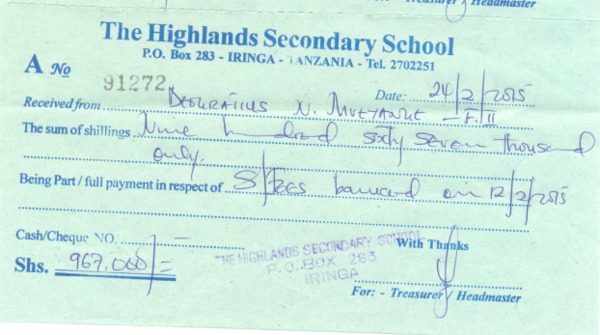 Treasurer / Headmaster
The Highlands Secondary School
P.O. Box 283 - IRINGA - TANZANIA - Tel. 2702251
A No 91272
Date: 24/2/2015
Received from Deogratius N. - F.II
The sum of shillings Nine hundred sixty seven thousand
only.
Being Part / full payment in respect of S/Fees banked on 12/2/2015
Cash/Cheque NO.
THE HIGHLANDS SECONDARY SCHOOL
P.O. BOX 283
IRINGA
With Thanks
Shs. 967,000/=
For: - Treasurer / Headmaster